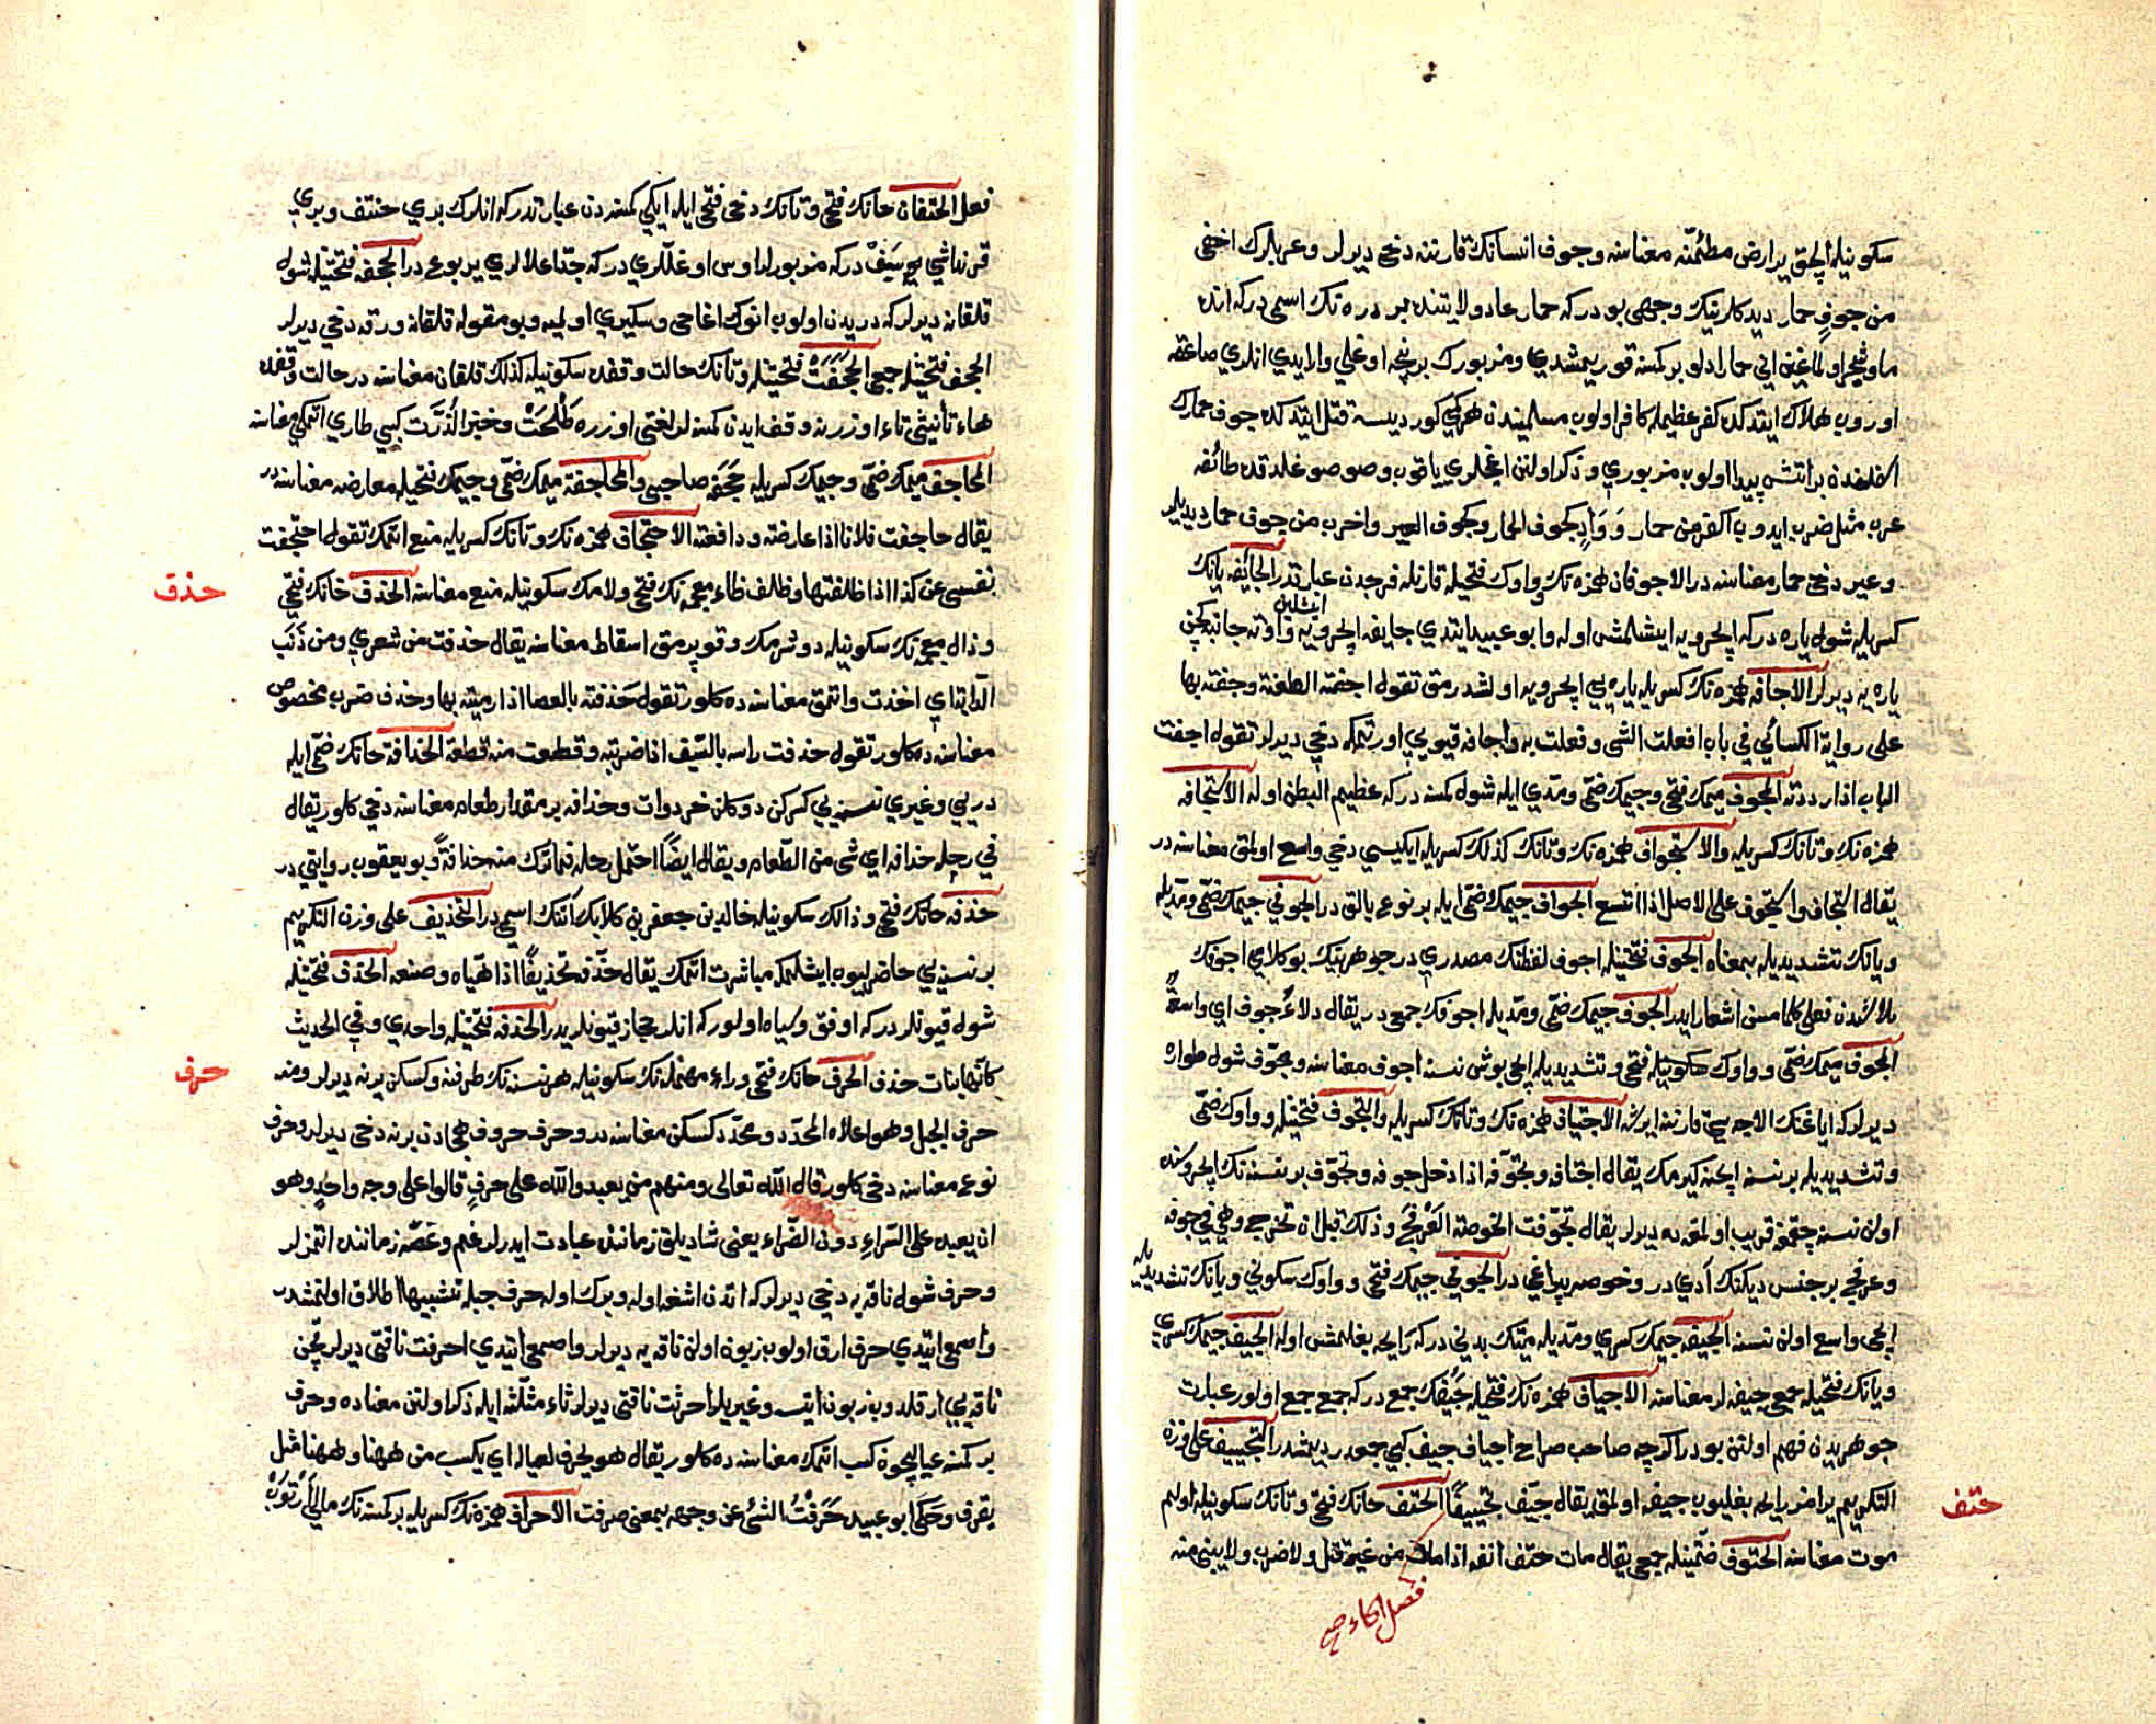 سكونيله الچق ير ارض مطئمنّه معناسنه وجوف انسانك قارننه دخي ديرلر وعربلرك اخفى
من جوفِ حمار ديدكلرينك وجهى بودركه حمار عاد ولايتنده بر دره نك اسمى دركه انده
ماء وشجر اولماغين انى حمار ادلو بر كمسنه قوريمشدي ومزبورك بر نيچه اوغلي وارايدي انلري صاعقه
اوروب هلاك ايتدكده كفر عظيمله كافر اولوب مسلميندن هر كيمي كورديسه قتل ايتدكده جوف حمارك
اسفلندن بر اتش پيدا اولوب مزبوري وذكر اولنن اغللري ياقوب وصوصوغلدقده طائفه
عرب مثل ضرب ايدوب اكفر من حمار وَوَادٍ كجوف الحمار وكجوف العير واخرب من جوف حمار ديديلر
وعير دخي حمار معناسنه در الاجوفان همزه نك وواوك فتحيله قارنله فرجدن عبارتدر الجائفه يانك
كسريله شول ياره دركه ايچرويه ايشلمش اوله وابو عبيد ايتدي جايفه ايچرويه ايشلين واوته جانبه كچن
ياره يه ديرلر الاجافه همزه نك كسريله ياره يي ايچرويه اولشدرمق تقول اجفته الطعنة وجفته بها
على رواية الكسائي في باب افعلت الشى وفعلت به واجافه قپويي اورتمكه دخي ديرلر تقول اجفت
الباب اذا رددته المجوف ميمك فتحي وجيمك ضمّي ومدّي ايله شول كمسنه دركه عظيم البطن اوله الاستجافه
همزه نك وتانك كسريله والاستجواف همزه نك وتانك كذلك كسريله ايكيسي دخي واسع اولمق معناسنه در
يقال استجاف واستجوف على الاصل اذا اتسع الجواف جيمك ضمّى ايله بر نوع بالق در الجوفي جيمك ضمّى ومدّيله
ويانك تشديديله بمعناه الجوف فتحتيله اجوف لفظنك مصدري در جوهرينك بو كلامي اجوفك
بلاسندن فعلى كلمسن اشعار ايدر الجوف جيمك ضمّي ومدّيله اجوفك جمعي در يقال دلاءٌ جوف اي واسعةٌ
المجوف ميمك ضمّى وواوك سكونيله فتحي وتشديديله ايچى بوش نسنه اجوف معناسنه ومجوّف شول طواره
ديرلركه اياغنك الاجه سي قارننه ايرشه الاجتياف همزه نك وتانك كسريله والتجوف فتحتيله وواوك ضمّى
وتشديديله بر نسنه ايچنه كيرمك يقال اجتافه وتجوّفه اذا دخل جوفه وتجوّف بر نسنه نك ايچروسنده
اولن نسنه چقمغه قريب اولمقده ديرلر يقال تجوّفت الخوصة العرفج وذلك قبل ان تخرج وهي في جوفه
وعرفج بر جنس ديكنك آدي در وخوصه يپراغي در الجوفي جيمك فتحى وواوك سكوني ويانك تشديديله
ايچى واسع اولن نسنه الجيفه جيمك كسري ومدّيله ميتك بدني دركه رايحه بغلمش اوله الجيف جيمك كسري
ويانك فتحيله جمعى جيفه لر معناسنه الاجياف همزه نك فتحيله جِيَفك جمعى دركه جمع جمع اولور عبارت
جوهريدن فهم اولنن بودر اكرچه صاحب صراح اجياف جيف كبي جمعدر ديمشدر التجييف على وزن
التكريم يرامز رايحه بغليوب جيفه اولمق يقال جيّف تجييفًا الحتف حانك فتحي وتانك سكونيله اولم
موت معناسنه الحتوف ضمّتيله جمعى يقال مات حتف انفه اذا مات من غير قتل ولا ضرب ولا يبنى منه
حتف
فصل الحاء صح
فعل الحتفان حانك فتحي وتانك دخى فتحي ايله ايكي كمسنه دن عبارتدركه انلرك بري حنتف وبري
قرنداشي سيف دركه مزبورلر اوس اوغللري دركه جدّ اعلالري يربوع در الحجف فتحتيله شول
قلقانه ديرلركه دريدن اولوب انوك اغاجى وسكيري اولميه وبو مقوله قلقانه ورقه دخي ديرلر
الحجف فتحتيله جمعى الحَجَفَتْ فتحتيله وتانك حالت وقفده سكونيله كذلك قلقان معناسنه در حالت وقفده
هاء تأنيثي تاء اوزرينه وقف ايدن كمسنه لر لغتى اوزره طَلْحَتْ وخبز الذُّرَت كبي طاري اتمكي معناسنه
المحاجف ميمك ضمّى وجيمك كسريله حجفه صاحبى والمحاجفة ميمك ضمّى وجيمك فتحيله معارضه معناسنه در
يقال حاجفت فلانا اذا عارضته ودافعته الاحتجاف همزه نك وتانك كسريله منع اتمك تقول احتجفت
نفسي عن كذا اذا ظلفتها وظلف ظاء معجمه نك فتحي ولامك سكونيله منع معناسنه الحذف حانك فتحي
وذال معجمه نك سكونيله دوشرمك وقوپرمق اسقاط معناسنه يقال حذفت من شعري ومن ذَنَب
الدّابّة اي اخذت واتمق معناسنه ده كلور تقول حَذفته بالعصا اذا رميته بها وحذف ضرب مخصوص
معناسنه ده كلور تقول حذفت راسه بالسّيف اذا ضربته وقطعت منه قطعة الحذافة حانك ضمّى ايله
دريي وغيري نسنه يي كسركن دوكلن خردوات وحذافه بر مقدار طعام معناسنه دخي كلور يقال
في رحله حذافة اي شى من الطّعام ويقال ايضًا احتمل رحله فما ترك منه حذافةً وبو يعقوب روايتي در
حذفه حانك فتحي وذالك سكونيله خالد بن جعفر بن كلابك آتنك اسمي در التحذيف على وزن التكريم
بر نسنه يي حاضرليوب ايشلمكه مباشرت اتمك يقال حذّفه تحذيفًا اذا هيّاه وصنعه الحذف فتحتيله
شول قيونلر دركه اوفق وسياه اولور كه انلر حجاز قيونلريدر الحذفه فتحتيله واحدي وفي الحديث
كانّها بنات حذف الحرف حانك فتحي وراء مهمله نك سكونيله هر نسنه نك طرفنه وكسكن يرينه ديرلر ومنه
حرف الجبل وهو اعلاه المحدّد ومحدّد كسكن معناسنه در وحرف حروف هجادن برينه دخي ديرلر وحرف
نوع معناسنه دخى كلور قال الله تعالى ومنهم من يعبد والله على حرفٍ قالوا على وجه واحدٍ وهو
ان يعبده على السّراءِ دون الضّراء يعنى شاديلق زماننده عبادت ايدرلر غم وغصّه زماننده اتمزلر
وحرف شول ناقه يه دخي ديرلركه اتدن اشغه اوله ويورك اوله حرف جبله تشبيها اطلاق اولنمشدر
واصمعى ايتدي حرف ارق اولوب زبون اولن ناقه يه ديرلر واصمعى ايتدي احرفت ناقتى ديرلر قچن
ناقه يي ارقلدوب زبون ايتسه وغيريلر احرثت ناقتى ديرلر ثاء مثلّثه ايله ذكر اولنن معناده وحرف
بر كمسنه عيالييچون كسب اتمك معناسنه ده كلور يقال هو يحرف لعياله اي يكسب من ههنا وههنا مثل
يقرف وحَكَى ابو عبيد حَرَفْتُ الشئ عن وجهه بمعنى صرفت الاحراف همزه نك كسريله بر كمسنه نك مالي آرْتُوبْ
حذف
حرف